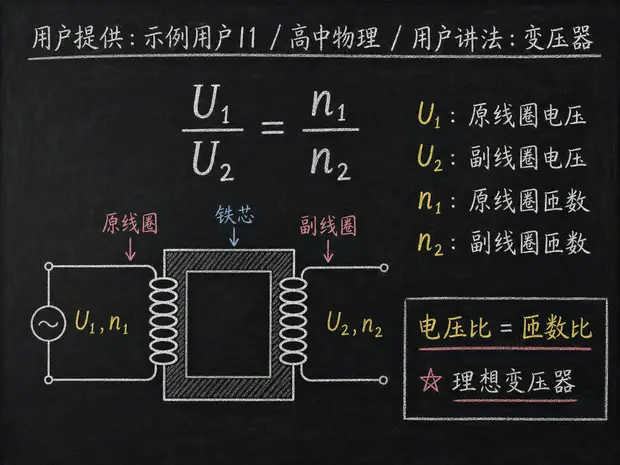 用户提供：示例用户11 / 高中物理 / 用户讲法：变压器
U₁/U₂ = n₁/n₂
U₁：原线圈电压
U₂：副线圈电压
n₁：原线圈匝数
n₂：副线圈匝数
原线圈
铁芯
副线圈
U₁, n₁
U₂, n₂
电压比 = 匝数比
☆ 理想变压器